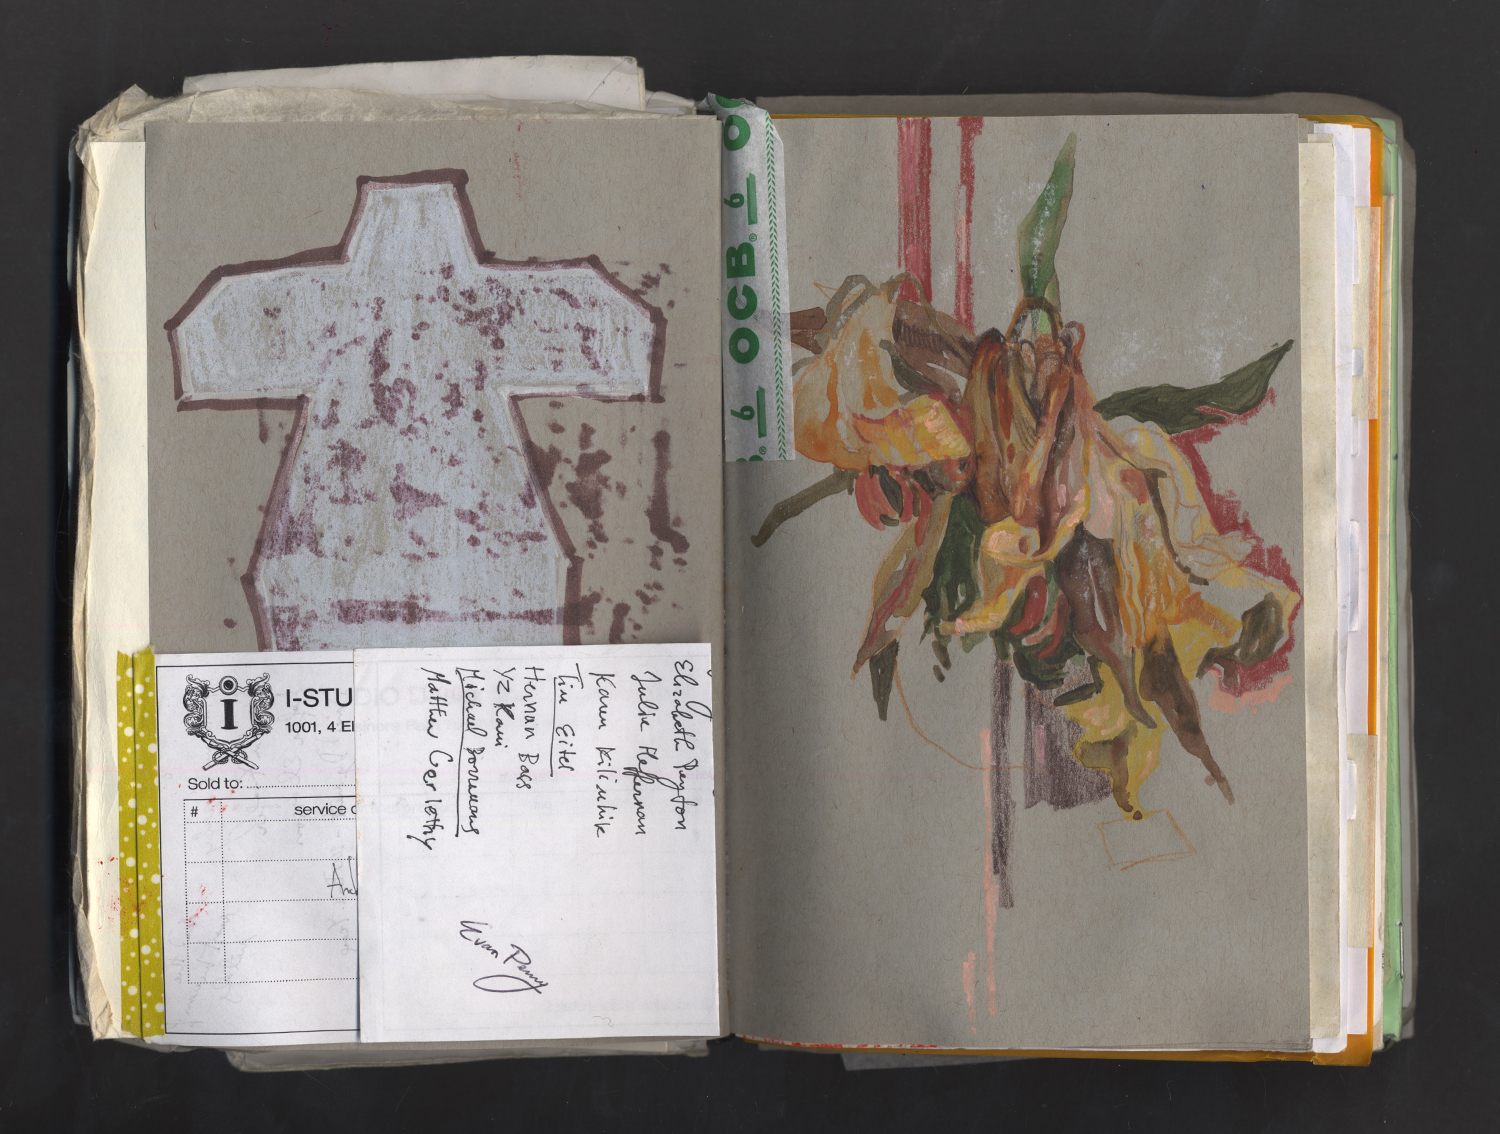 I-STU
1001, 4 El
Sold to:
#
service
Elizabeth Peyton
Julie Heffernan
Karen Kilimnik
Tim Eitel
Hernan Bass
YZ Kami
Michael Borremans
Matthew Cerletty
Evan Penny
6 OCB® 6